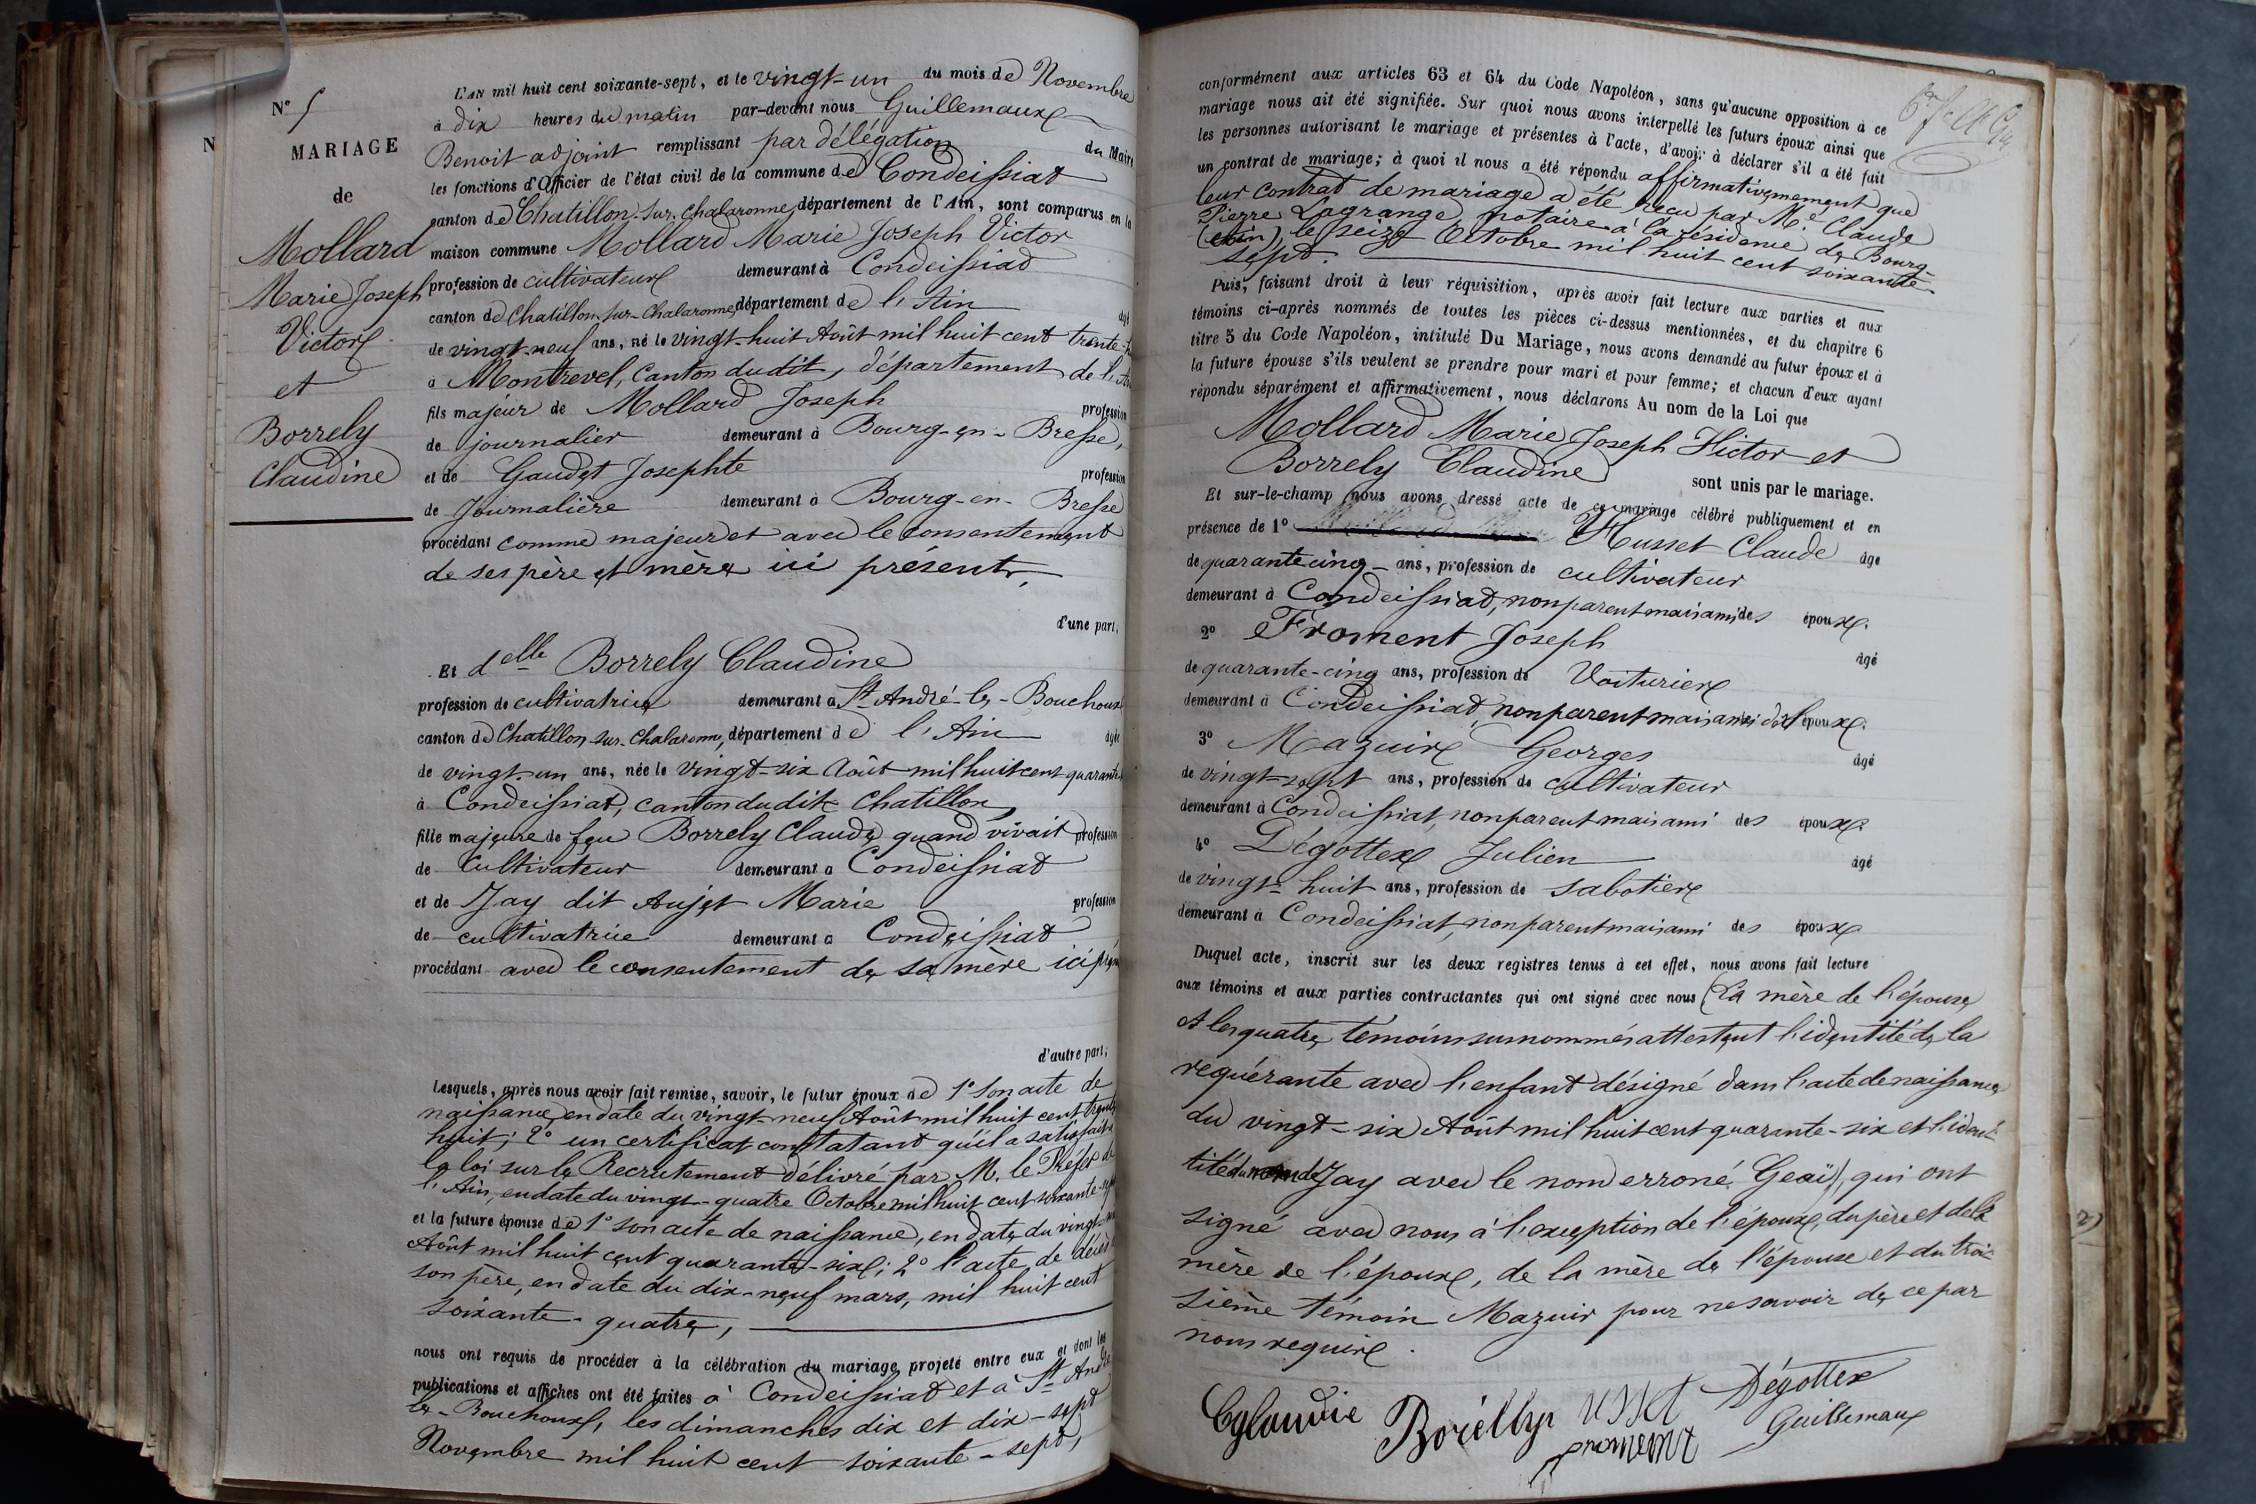 N
N° 5
MARIAGE
de
Mollard
Marie Joseph
Victor
et
Borrely
Claudine
L'AN mil huit cent soixante-sept, et le vingt-un du mois de Novembre
à dix heures du matin par-devant nous Guillemaux
Benoit adjoint remplissant par délégation du Maire
les fonctions d'Officier de l'état civil de la commune de Condeissiat
canton de Chatillon-sur-Chalaronne, département de l'Ain, sont comparus en la
maison commune Mollard Marie Joseph Victor
profession de cultivateur demeurant à Condeissiat
canton de Chatillon-sur-Chalaronne, département de l'Ain âgé
de vingt-neuf ans, né le vingt-huit Août mil huit cent trente-
à Montrevel, canton dudit, département de l'Ain
fils majeur de Mollard Joseph profession
de journalier demeurant à Bourg-en-Bresse,
et de Gaudet Josephte profession
de Journalière demeurant à Bourg-en-Bresse
procédant comme majeur et avec le consentement
de ses père et mère ici présents,
d'une part;
Et delle Borrely Claudine
profession de cultivatrice demeurant à St André-le-Bouchoux
canton de Chatillon-sur-Chalaronne, département de l'Ain âgée
de vingt-un ans, née le vingt-six Août mil huit cent quarante
à Condeissiat, canton dudit Chatillon,
fille majeure de feu Borrely Claude, quand vivait profession
de Cultivateur demeurant à Condeissiat
et de Jay dit Aujet Marie profession
de cultivatrice demeurant à Condeissiat
procédant avec le consentement de sa mère ici
d'autre part;
Lesquels, après nous avoir fait remise, savoir, le futur époux de 1° Son acte de
naissance, en date du vingt-neuf Août mil huit cent trente
huit; 2° un certificat constatant qu'il a satisfait à
la loi sur le Recrutement délivré par M. le Préfet de
l'Ain, en date du vingt-quatre Octobre mil huit cent soixante-sept
et la future épouse de 1° son acte de naissance, en date du vingt-
Août mil huit cent quarante-six; 2° l'acte de décès
son père, en date du dix-neuf mars, mil huit cent
soixante-quatre,
nous ont requis de procéder à la célébration du mariage projeté entre eux et dont les
publications et affiches ont été faites à Condeissiat et à St André
le-Bouchoux, les dimanches dix et dix-sept
Novembre mil huit cent soixante-sept,
conformément aux articles 63 et 64 du Code Napoléon, sans qu'aucune opposition à ce
mariage nous ait été signifiée. Sur quoi nous avons interpellé les futurs époux ainsi que
les personnes autorisant le mariage et présentes à l'acte, d'avoir à déclarer s'il a été fait
un contrat de mariage; à quoi il nous a été répondu affirmativement que
leur contrat de mariage a été reçu par Me Claude
Pierre Lagrange, notaire à la résidence de Bourg-
(Ain), le seize Octobre mil huit cent soixante-
sept.
Puis, faisant droit à leur réquisition, après avoir fait lecture aux parties et aux
témoins ci-après nommés de toutes les pièces ci-dessus mentionnées, et du chapitre 6
titre 5 du Code Napoléon, intitulé Du Mariage, nous avons demandé au futur époux et à
la future épouse s'ils veulent se prendre pour mari et pour femme; et chacun d'eux ayant
répondu séparément et affirmativement, nous déclarons Au nom de la Loi que
Mollard Marie Joseph Victor et
Borrely Claudine sont unis par le mariage.
Et sur-le-champ nous avons dressé acte de ce mariage célébré publiquement et en
présence de 1° Husset Claude âge
de quarante cinq ans, profession de cultivateur
demeurant à Condeissiat, non parent mais ami des époux.
2° Froment Joseph âgé
de quarante-cinq ans, profession de Voiturier
demeurant à Condeissiat, non parent mais ami des époux.
3° Mazuir Georges âgé
de vingt-sept ans, profession de cultivateur
demeurant à Condeissiat, non parent mais ami des époux.
4° Dégottex Julien âgé
de vingt-huit ans, profession de sabotier
demeurant à Condeissiat, non parent mais ami des époux
Duquel acte, inscrit sur les deux registres tenus à cet effet, nous avons fait lecture
aux témoins et aux parties contractantes qui ont signé avec nous (La mère de l'épouse
et les quatre témoins surnommés attestent l'identité de la
requérante avec l'enfant désigné dans l'acte de naissance
du vingt-six Août mil huit cent quarante-six et l'iden-
tité du nom de Jay avec le nom erroné Geai), qui ont
signé avec nous à l'exception de l'époux, du père et de la
mère de l'époux, de la mère de l'épouse et du troi-
sième témoin Mazuir pour ne savoir de ce par
nous requis.
Cglaudie Borélly usset Dégottex
Guillemaux
promemt
2)